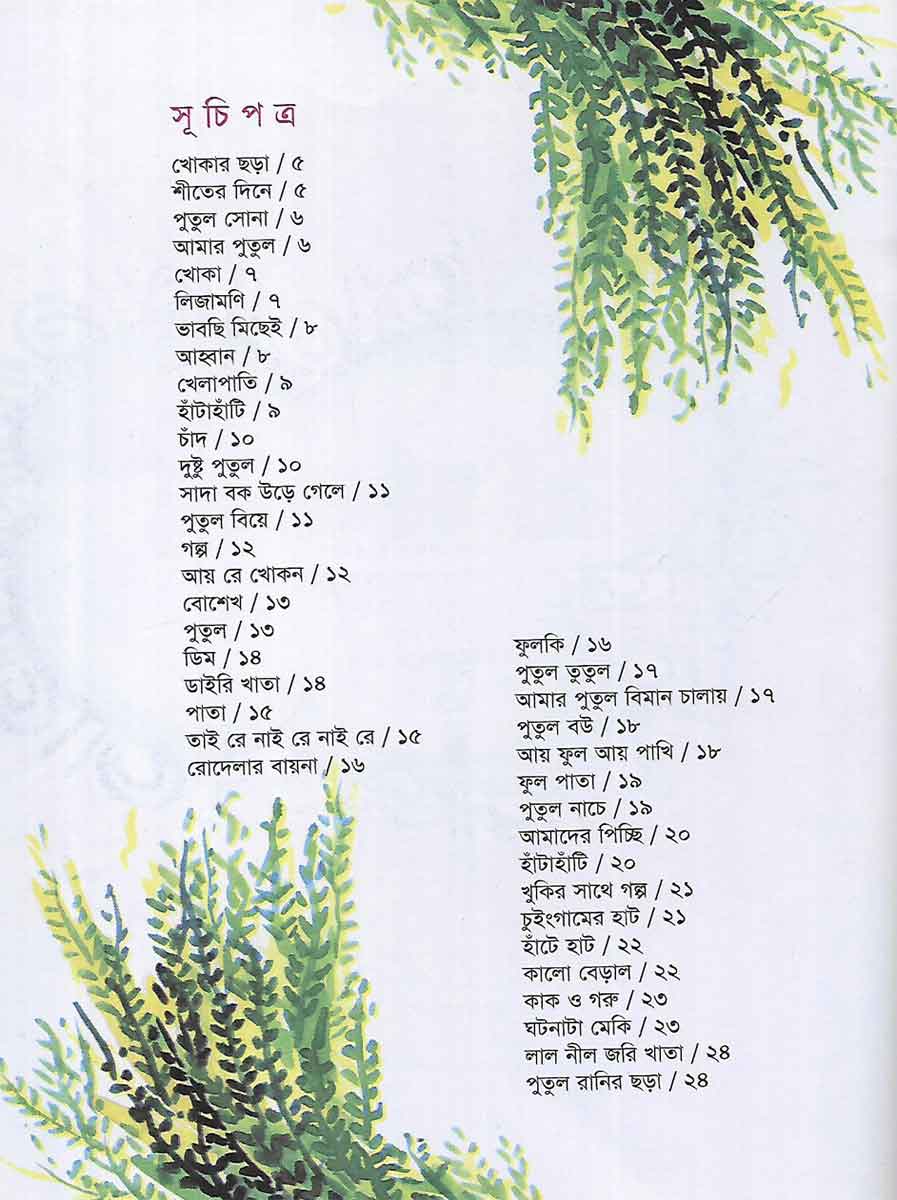 সূচিপত্র
খোকার ছড়া / ৫
শীতের দিনে / ৫
পুতুল সোনা / ৬
আমার পুতুল / ৬
খোকা / ৭
লিজামণি / ৭
ভাবছি মিছেই / ৮
আহ্বান / ৮
খেলাপাতি / ৯
হাঁটাহাঁটি / ৯
চাঁদ / ১০
দুষ্টু পুতুল / ১০
সাদা বক উড়ে গেলে / ১১
পুতুল বিয়ে / ১১
গল্প / ১২
আয় রে খোকন / ১২
বোশেখ / ১৩
পুতুল / ১৩
ডিম / ১৪
ডাইরি খাতা / ১৪
পাতা / ১৫
তাই রে নাই রে নাই রে / ১৫
রোদেলার বায়না / ১৬
ফুলকি / ১৬
পুতুল তুতুল / ১৭
আমার পুতুল বিমান চালায় / ১৭
পুতুল বউ / ১৮
আয় ফুল আয় পাখি / ১৮
ফুল পাতা / ১৯
পুতুল নাচে / ১৯
আমাদের পিচ্ছি / ২০
হাঁটাহাঁটি / ২০
খুকির সাথে গল্প / ২১
চুইংগামের হাট / ২১
হাঁটে হাট / ২২
কালো বেড়াল / ২২
কাক ও গরু / ২৩
ঘটনাটা মেকি / ২৩
লাল নীল জরি খাতা / ২৪
পুতুল রানির ছড়া / ২৪